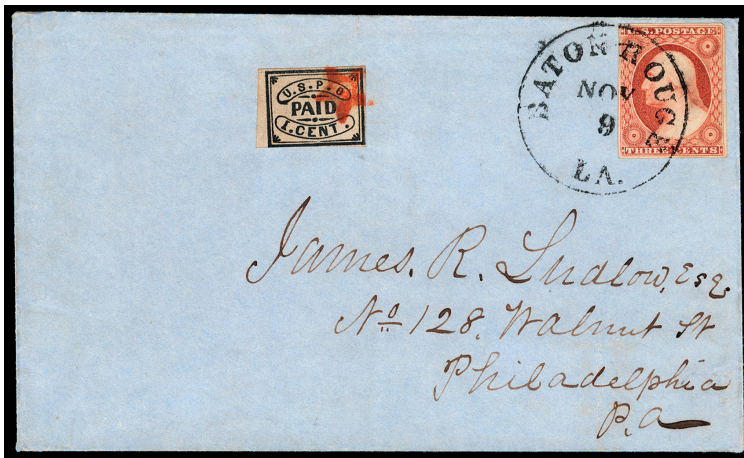 U.S.P.O.
PAID
1.CENT.
BATON ROUGE
NOV
9
LA.
U.S. POSTAGE
THREE CENTS
James. R. Ludlow, Esq.
No 128. Walnut St
Philadelphia
P.a